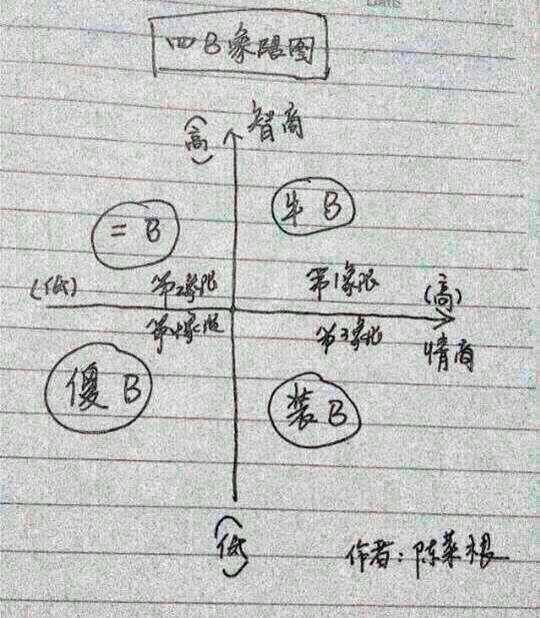 四B象限图
(高) 智商
二B
牛B
(低) 第2象限 第1象限 (高)
第4象限 第3象限 情商
傻B
装B
(低)
作者:陈菜根